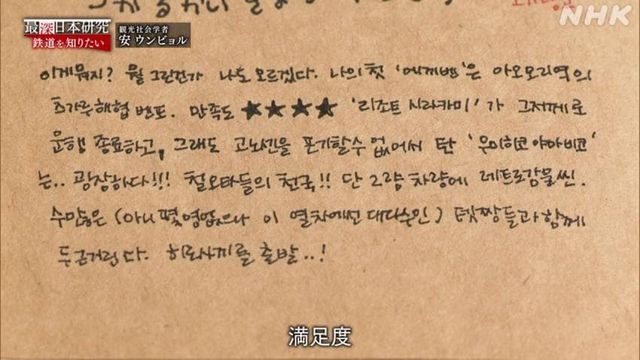 NHK
最深日本研究
鉄道を知りたい
観光社会学者
安 ウンビョル
이게뭐지? 뭘 그린건가 나도 모르겠다. 나의 첫 '에끼벤'은 아오모리역의
해협 만족도 ★★★★ '리조트 시라카미'가 그저께로
운행 종료하고, 그래도 고노센을 포기할수 없어서 탄 '우미히코 야마히코'
는.. 굉장하다!!! 철오타들의 천국!! 단 2량 차량에 레트로감 물씬.
수많은 (아니 몇명없으나 이 열차에선 대다수인) 텟짱들과 함께
두근거린다. 히로사끼를 출발..!
満足度